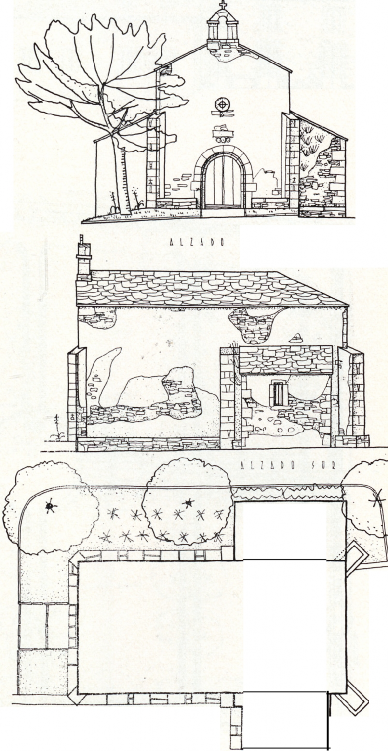 ALZADO
ALZADO SUR